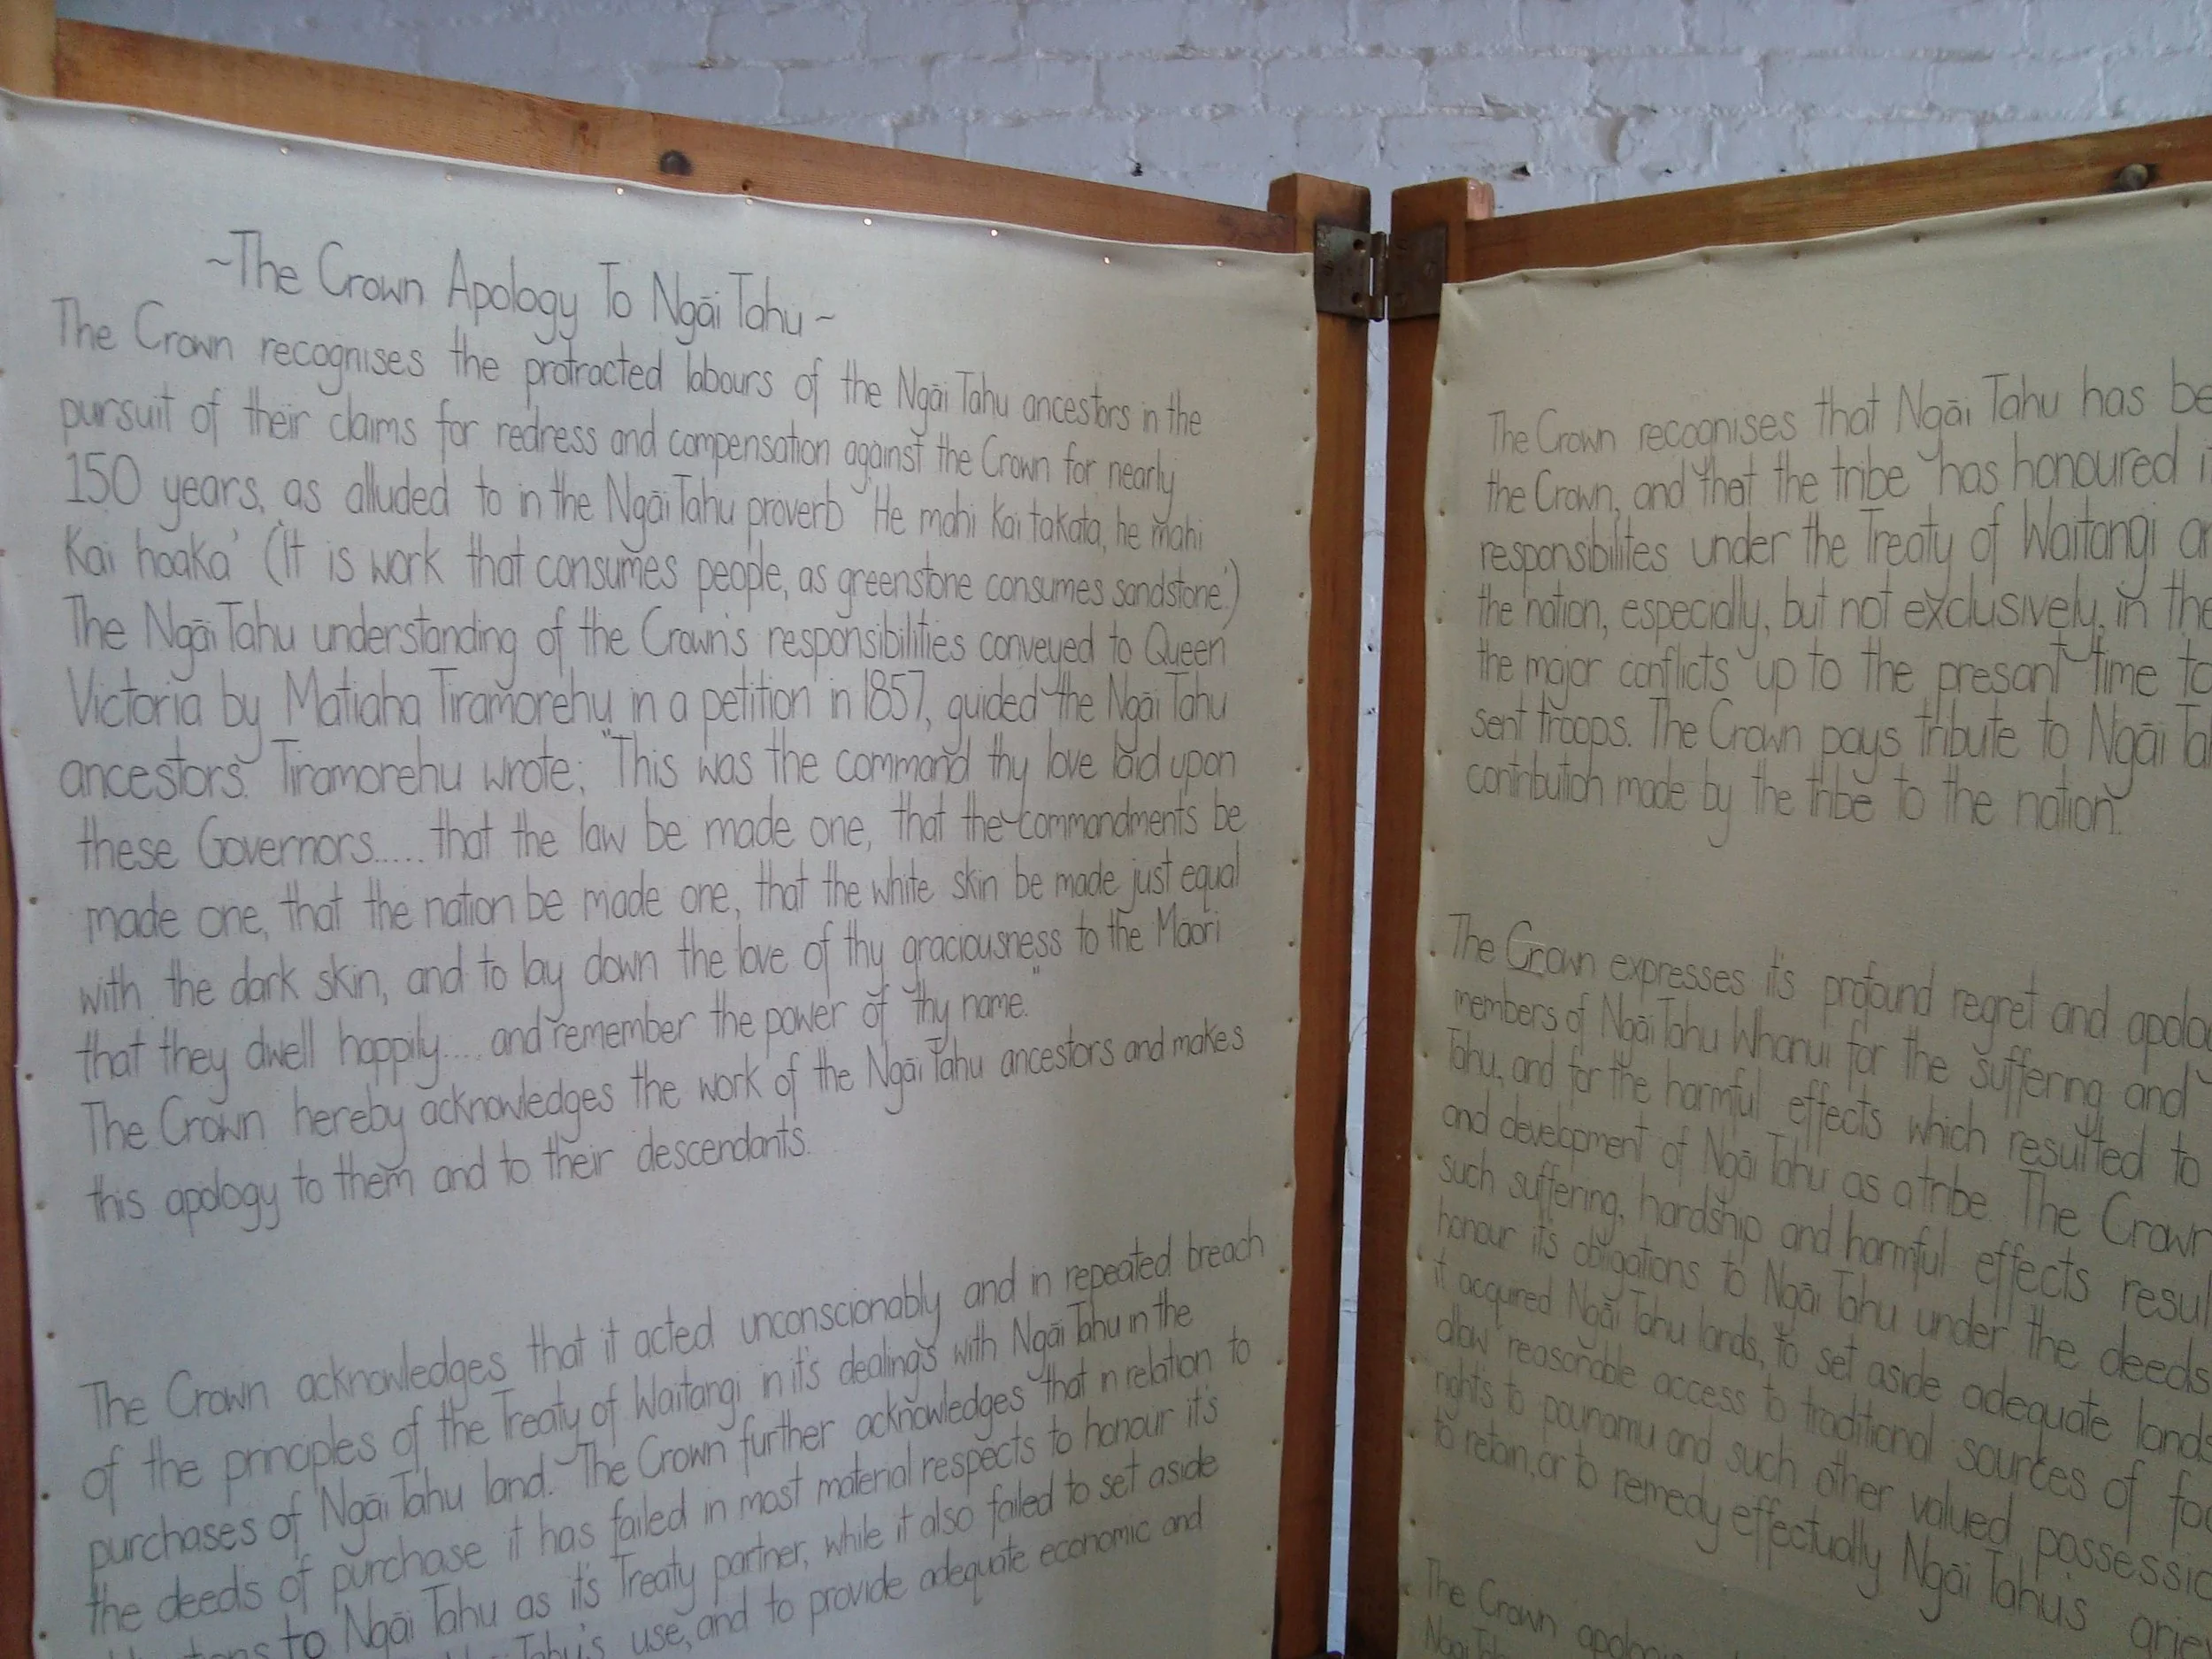 ~The Crown Apology To Ngāi Tahu~
The Crown recognises the protracted labours of the Ngāi Tahu ancestors in the
pursuit of their claims for redress and compensation against the Crown for nearly
150 years, as alluded to in the Ngāi Tahu proverb 'He mahi Kai takata, he mahi
Kai hoaka' ('It is work that consumes people, as greenstone consumes sandstone.')
The Ngāi Tahu understanding of the Crown's responsibilities conveyed to Queen
Victoria by Matiaha Tiramorehu in a petition in 1857, guided the Ngāi Tahu
ancestors. Tiramorehu wrote; "This was the command thy love laid upon
these Governors..... that the law be made one, that the commandments be
made one, that the nation be made one, that the white skin be made just equal
with the dark skin, and to lay down the love of thy graciousness to the Māori
that they dwell happily.... and remember the power of thy name."
The Crown hereby acknowledges the work of the Ngāi Tahu ancestors and makes
this apology to them and to their descendants.
The Crown acknowledges that it acted unconscionably and in repeated breach
of the principles of the Treaty of Waitangi in it's dealings with Ngāi Tahu in the
purchases of Ngāi Tahu land. The Crown further acknowledges that in relation to
the deeds of purchase it has failed in most material respects to honour it's
to Ngāi Tahu as it's Treaty partner, while it also failed to set aside
Tahu's use, and to provide adequate economic and
The Crown recognises that Ngāi Tahu has be
the Crown, and that the tribe has honoured i
responsibilites under the Treaty of Waitangi an
the nation, especially, but not exclusively, in the
the major conflicts up to the presant time to
sent troops. The Crown pays tribute to Ngāi Ta
contribution made by the tribe to the nation.
The Crown expresses it's profound regret and apolo
members of Ngāi Tahu Whanui for the suffering and
Tahu, and for the harmful effects which resulted to
and development of Ngāi Tahu as a tribe. The Crown
such suffering, hardship and harmful effects resul
honour it's obligations to Ngāi Tahu under the deeds
it acquired Ngāi Tahu lands, to set aside adequate lands
allow reasonable access to traditional sources of foo
rights to pounamu and such other valued possessio
to retain, or to remedy effectually Ngāi Tahu's grie
The Crown apologi
Ngāi